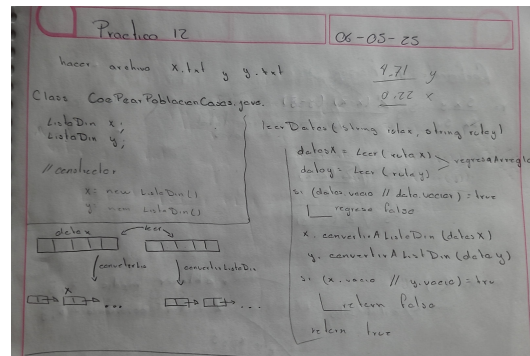 Practico 12
06-05-25
hacer archivo x.txt y y.txt
4.71 y
0.22 x
Class CoePearPoblacionCasos.java
ListaDin x;
ListaDin y;
// constructor
x: new ListaDin()
y: new ListaDin()
datox
leer
convertir
convertirListaDin
x
...
...
leerDatos (string, string rutay)
datosX = Leer (ruta X)
datoy = Leer (ruta y)
regresaArreglo
si (datos.vacio // dato.vacio) = true
regresa false
x. convertirAListaDin (datosX)
y. convertirAListDin (datoy)
si (x.vacio // y.vacio) = tru
return false
return true